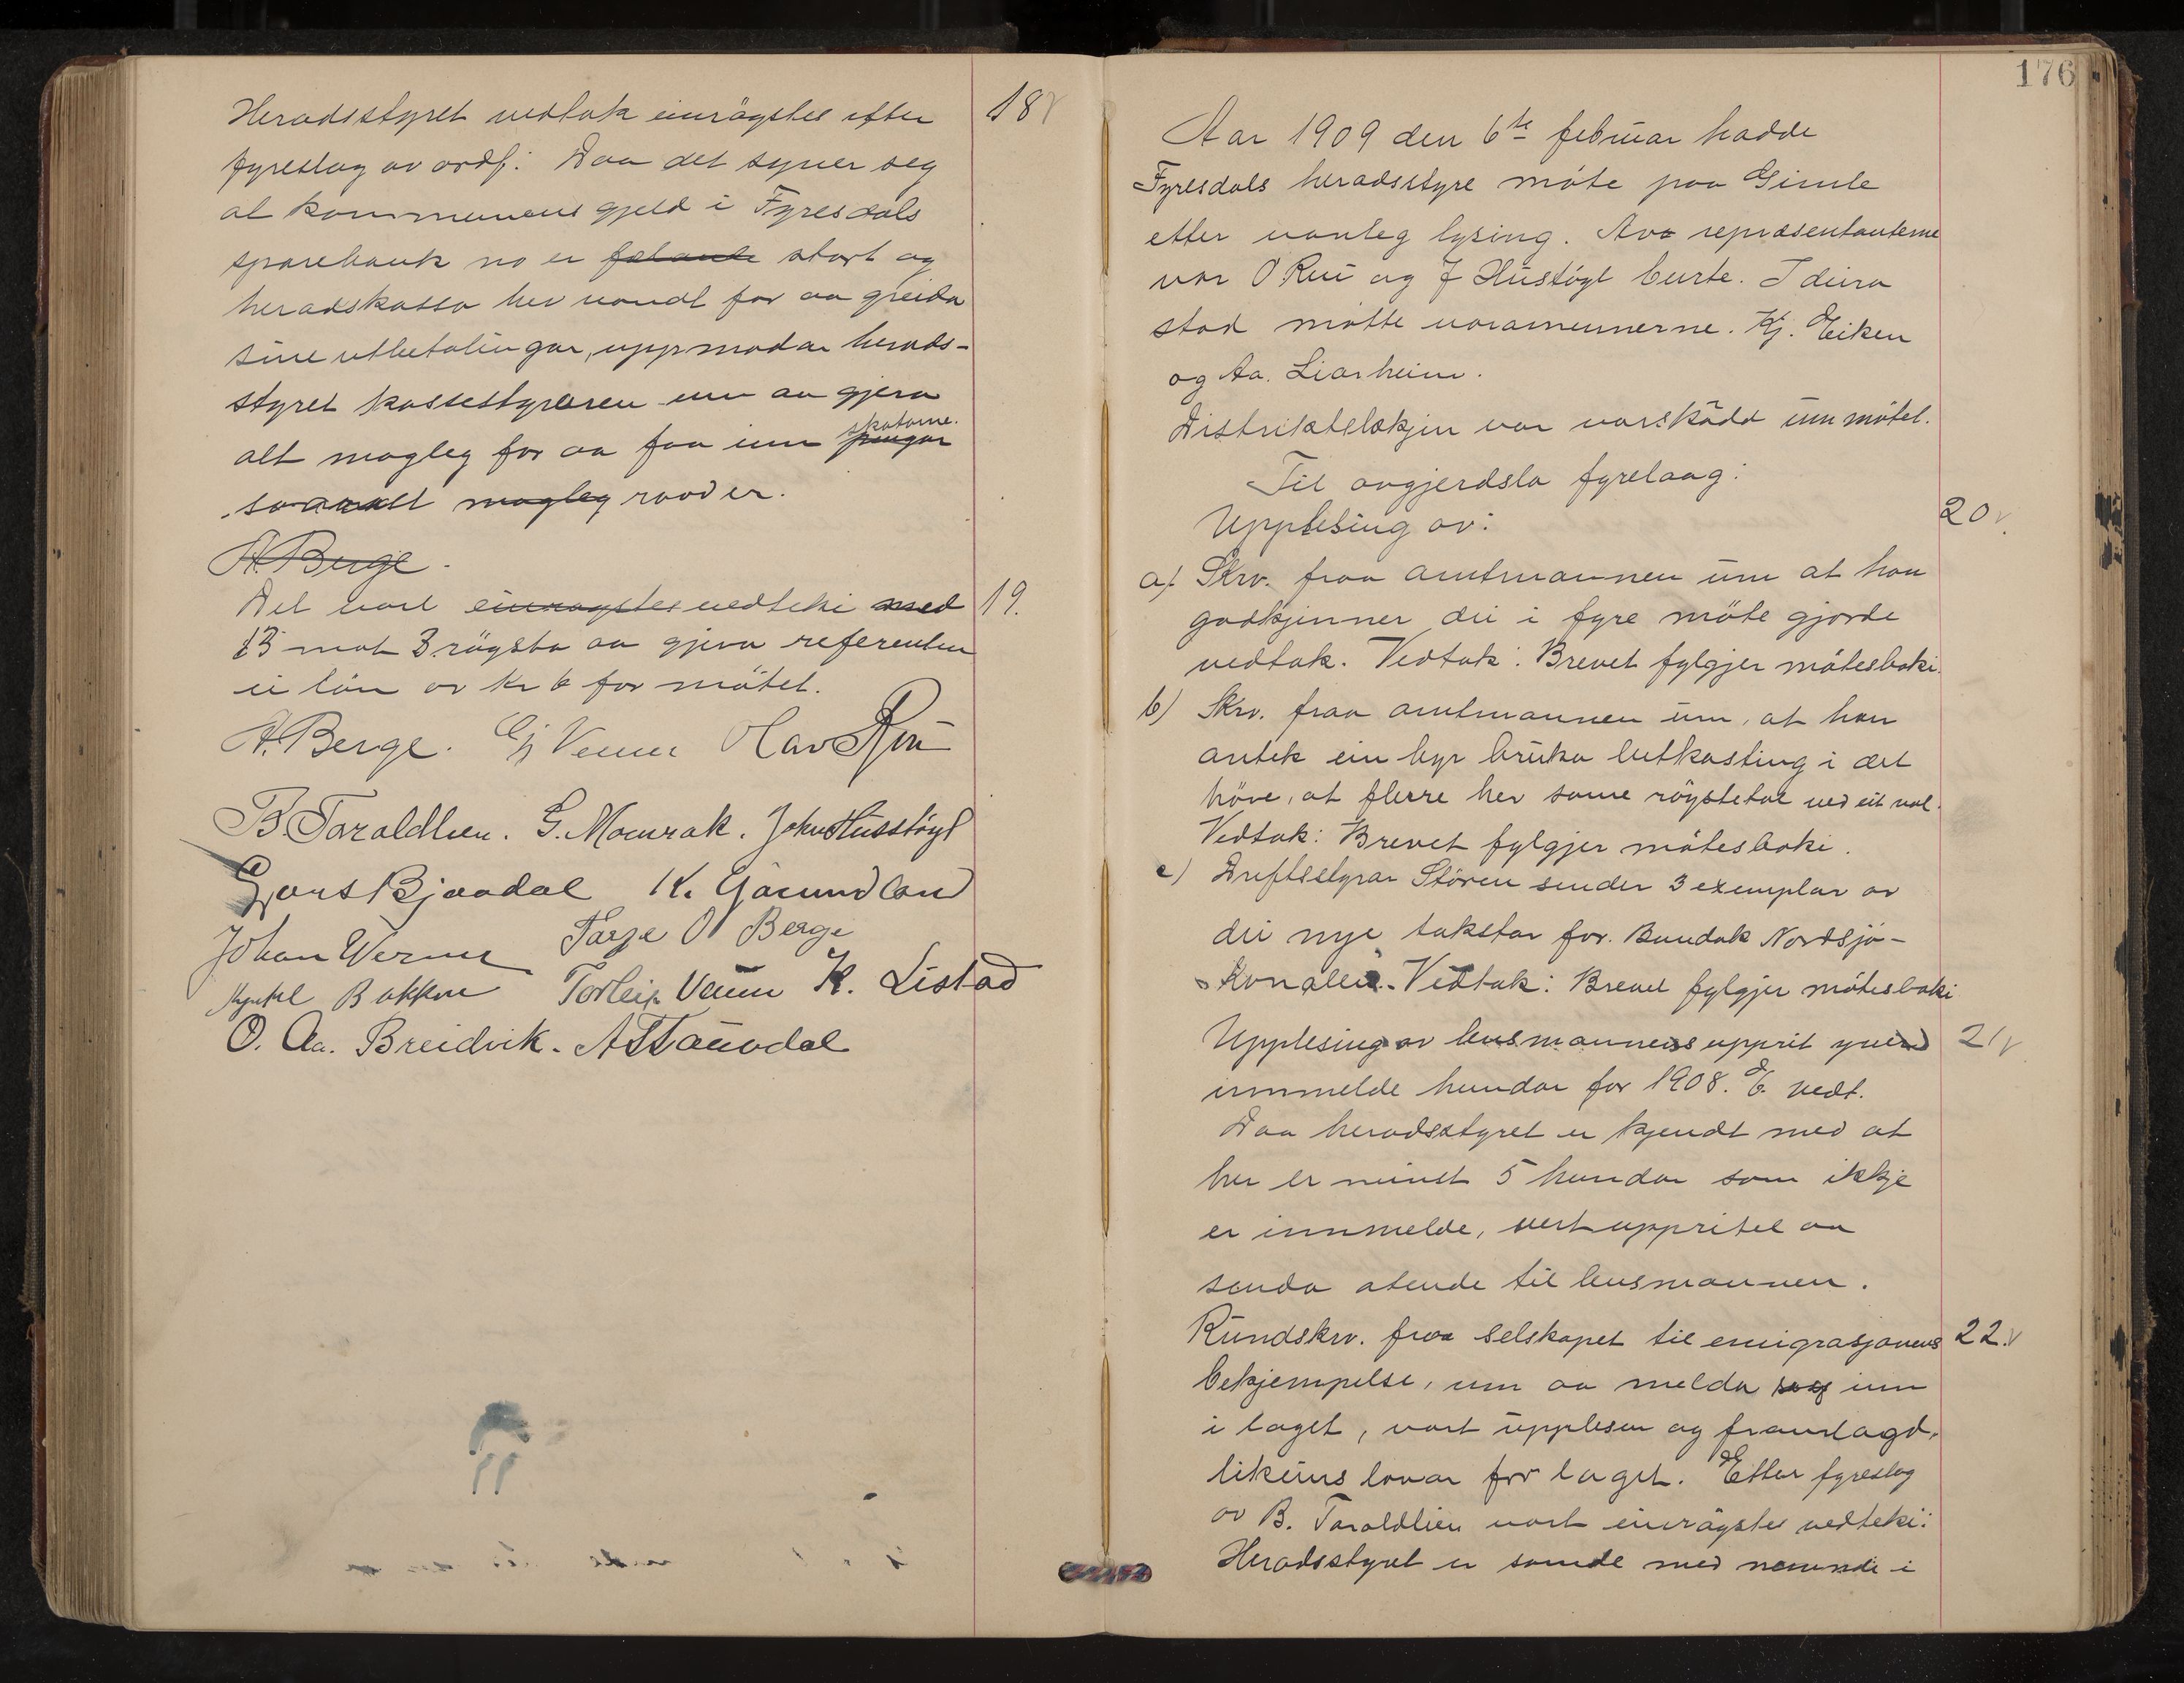 Heradsstyret vedtok einrögstes etter 18
fyreslag av ordf: Daa det syner seg
at kommunens gjeld i Fyresdals
sparebank no er stort og
heradskassa hev vondt for aa greida
sine utbetalingar, uppmodar herads-
styret kassestyraren um aa gjera
alt mogleg for aa faa inn pengar skatarne.
so mogleg raad er.
A Berge.
Det vart einrogstes vedteki med 19.
13 mot 3 rögsto aa gjeva referenten
ei lön av kr 6 for mötet.
A. Berge. Gj Veum Olav Rui
B Taraldlien. G. Momrak. John Husstöyl
Lars Bjaadal K. Gaarundland
Johan Verum Tarje O Berge
Kyntel Bakken Torleif Veum K. Listad
O. Aa. Breidvik. A T Taurdal
176
Aar 1909 den 6te februar hadde
Fyresdals heradsstyre möte paa Gimle
etter vanleg lysing. Av repræsentanterne
var O Rui og J Hustöyl burte. I deira
stad mötte varamennerne. Kj. Eiken
og Aa. Liarheim.
Distriktslækjin var varsködd um mötet.
Til avgjerdsla fyrelaag:
Upplesing av: 20
a). Skrv. fraa amtmannen um at han
godkjenner dei i fyre möte gjorde
vedtak. Vedtak: Brevet fylgjer mötesboki.
b) Skrv. fraa amtmannen um, at han
antek ein byr bruka lutkasting i det
höve, at fleire hev same röystetal ved eit val.
Vedtak: Brevet fylgjer mötesboki.
c) Driftsstyrar Stören sender 3 exemplar av
dei nye takstar for Bandak Nordsjö-
Kanalen. Vedtak: Brevet fylgjer mötesboki
Upplesing av lensmannens upprit yver 21
innmelde hundar for 1908. E. vedt.
Daa heradsstyret er kjendt med at
her er minst 5 hundar som ikkje
er innmelde, vert uppritet aa
senda atende til lensmannen.
Rundskrv. fraa selskapet til emigrasjonens 22.
bekjempelse, um aa melda seg inn
i laget, vart upplesen og framlagd,
likeins lovar for laget. Etter fyreslag
av B. Taraldlien vart einrögstes vedteki:
Heradsstyret er samde med nemndi i